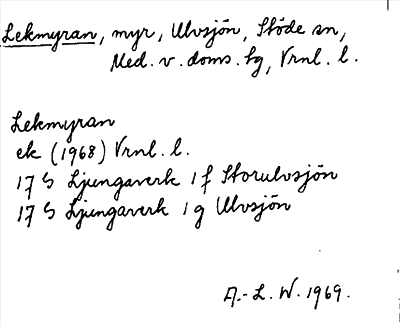 Lekmyran, myr, Ulvsjön, Stöde sn,
Med. v. doms. tg, Vrnl. l.
Lekmyran
ek (1968) Vrnl. l.
17 G Ljungaverk 1 f Storulvsjön
17 G Ljungaverk 1 g Ulvsjön
A.-L. W. 1969.